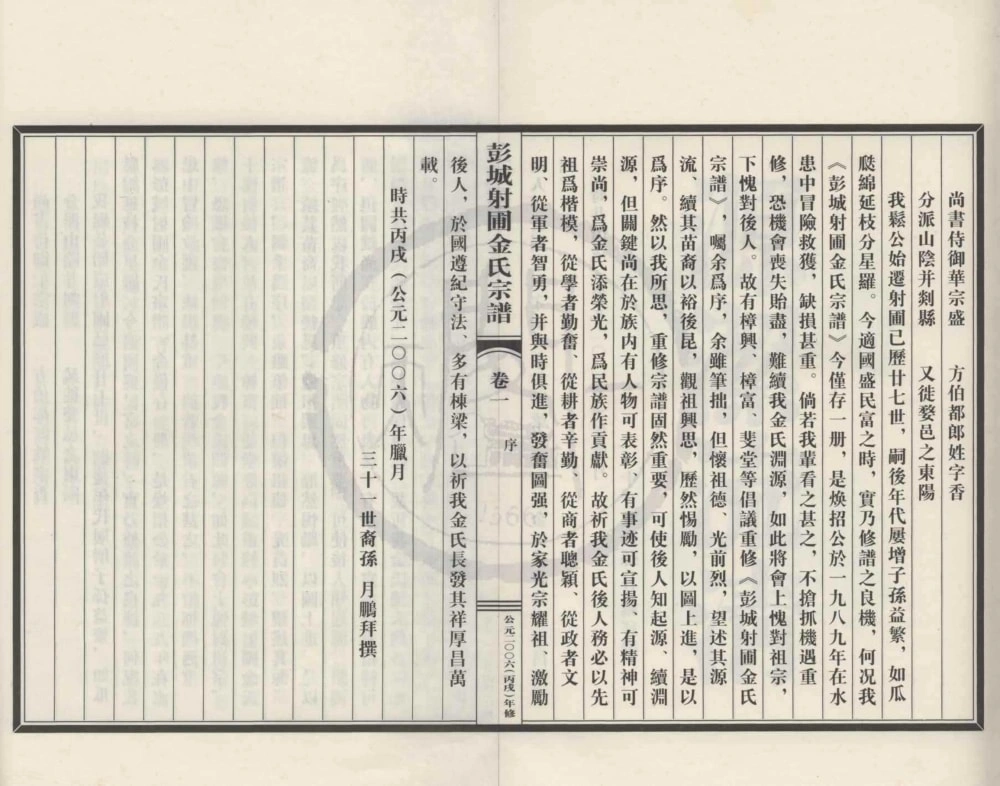 尚書侍御華宗盛　方伯都郎姓字香
分派山陰并剡縣　又徙婺邑之東陽
我鬆公始遷射圃已歷廿七世，嗣後年代屢增子孫益繁，如瓜
瓞綿延枝分星羅。今適國盛民富之時，實乃修譜之良機，何况我
《彭城射圃金氏宗譜》今僅存一册，是焕招公於一九八九年在水
患中冒險救獲，缺損甚重。倘若我輩看之甚之，不搶抓機遇重
修，恐機會喪失貽盡，難續我金氏淵源，如此將會上愧對祖宗，
下愧對後人。故有樟興、樟富、斐堂等倡議重修《彭城射圃金氏
宗譜》，囑余爲序，余雖筆拙，但懷祖德、光前烈，望述其源
流、續其苗裔以裕後昆，觀祖興思，歷然惕勵，以圖上進，是以
爲序。然以我所思，重修宗譜固然重要，可使後人知起源、續淵
源，但關鍵尚在於族内有人物可表彰、有事迹可宣揚、有精神可
崇尚，爲金氏添榮光，爲民族作貢獻。故祈我金氏後人務必以先
祖爲楷模，從學者勤奮、從耕者辛勤、從商者聰穎、從政者文
明、從軍者智勇，并與時俱進，發奮圖强，於家光宗耀祖、激勵
彭城射圃金氏宗譜
卷一
序
公元二〇〇六（丙戌）年修
後人，於國遵紀守法　多有棟梁，以祈我金氏長發其祥厚昌萬
載。
時共丙戌（公元二〇〇六）年臘月
三十一世裔孫　月鵬拜撰
1566